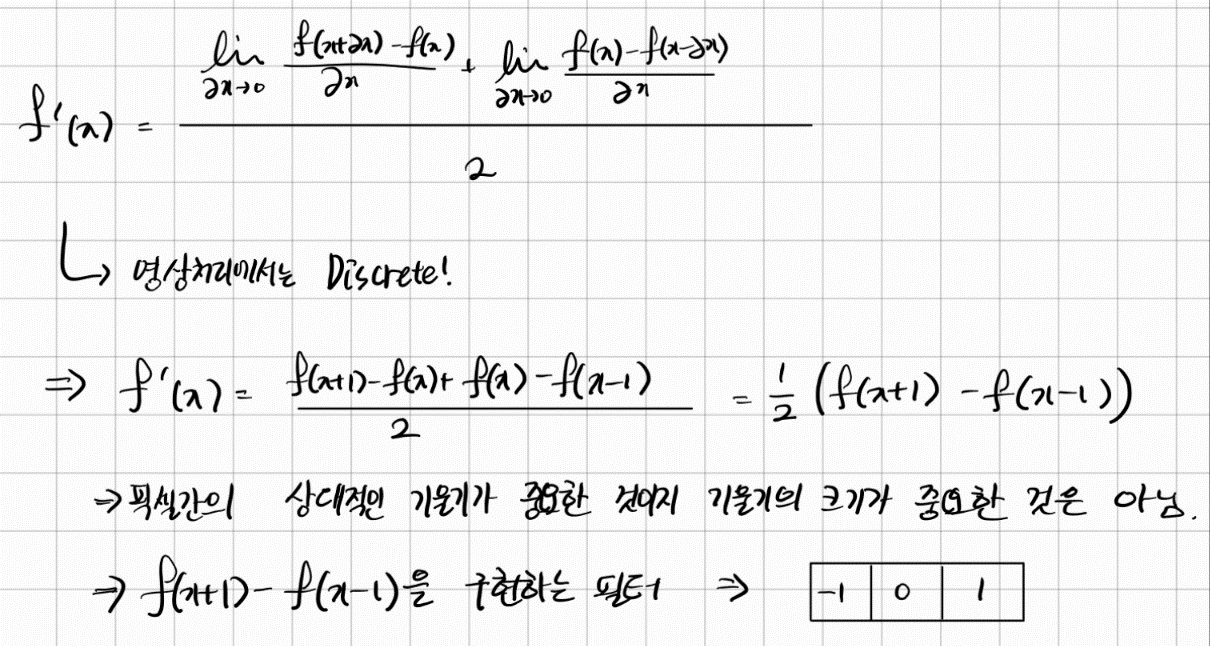 f'(x) = (lim ∂x→0 (f(x+∂x) - f(x))/∂x + lim ∂x→0 (f(x) - f(x-∂x))/∂x) / 2
↳ 영상처리에서는 Discrete!
⇒ f'(x) = (f(x+1) - f(x) + f(x) - f(x-1)) / 2 = 1/2 (f(x+1) - f(x-1))
⇒ 픽셀간의 상대적인 기울기가 중요한 것이지 기울기의 크기가 중요한 것은 아님.
⇒ f(x+1) - f(x-1)을 구현하는 필터 ⇒ -1 0 1